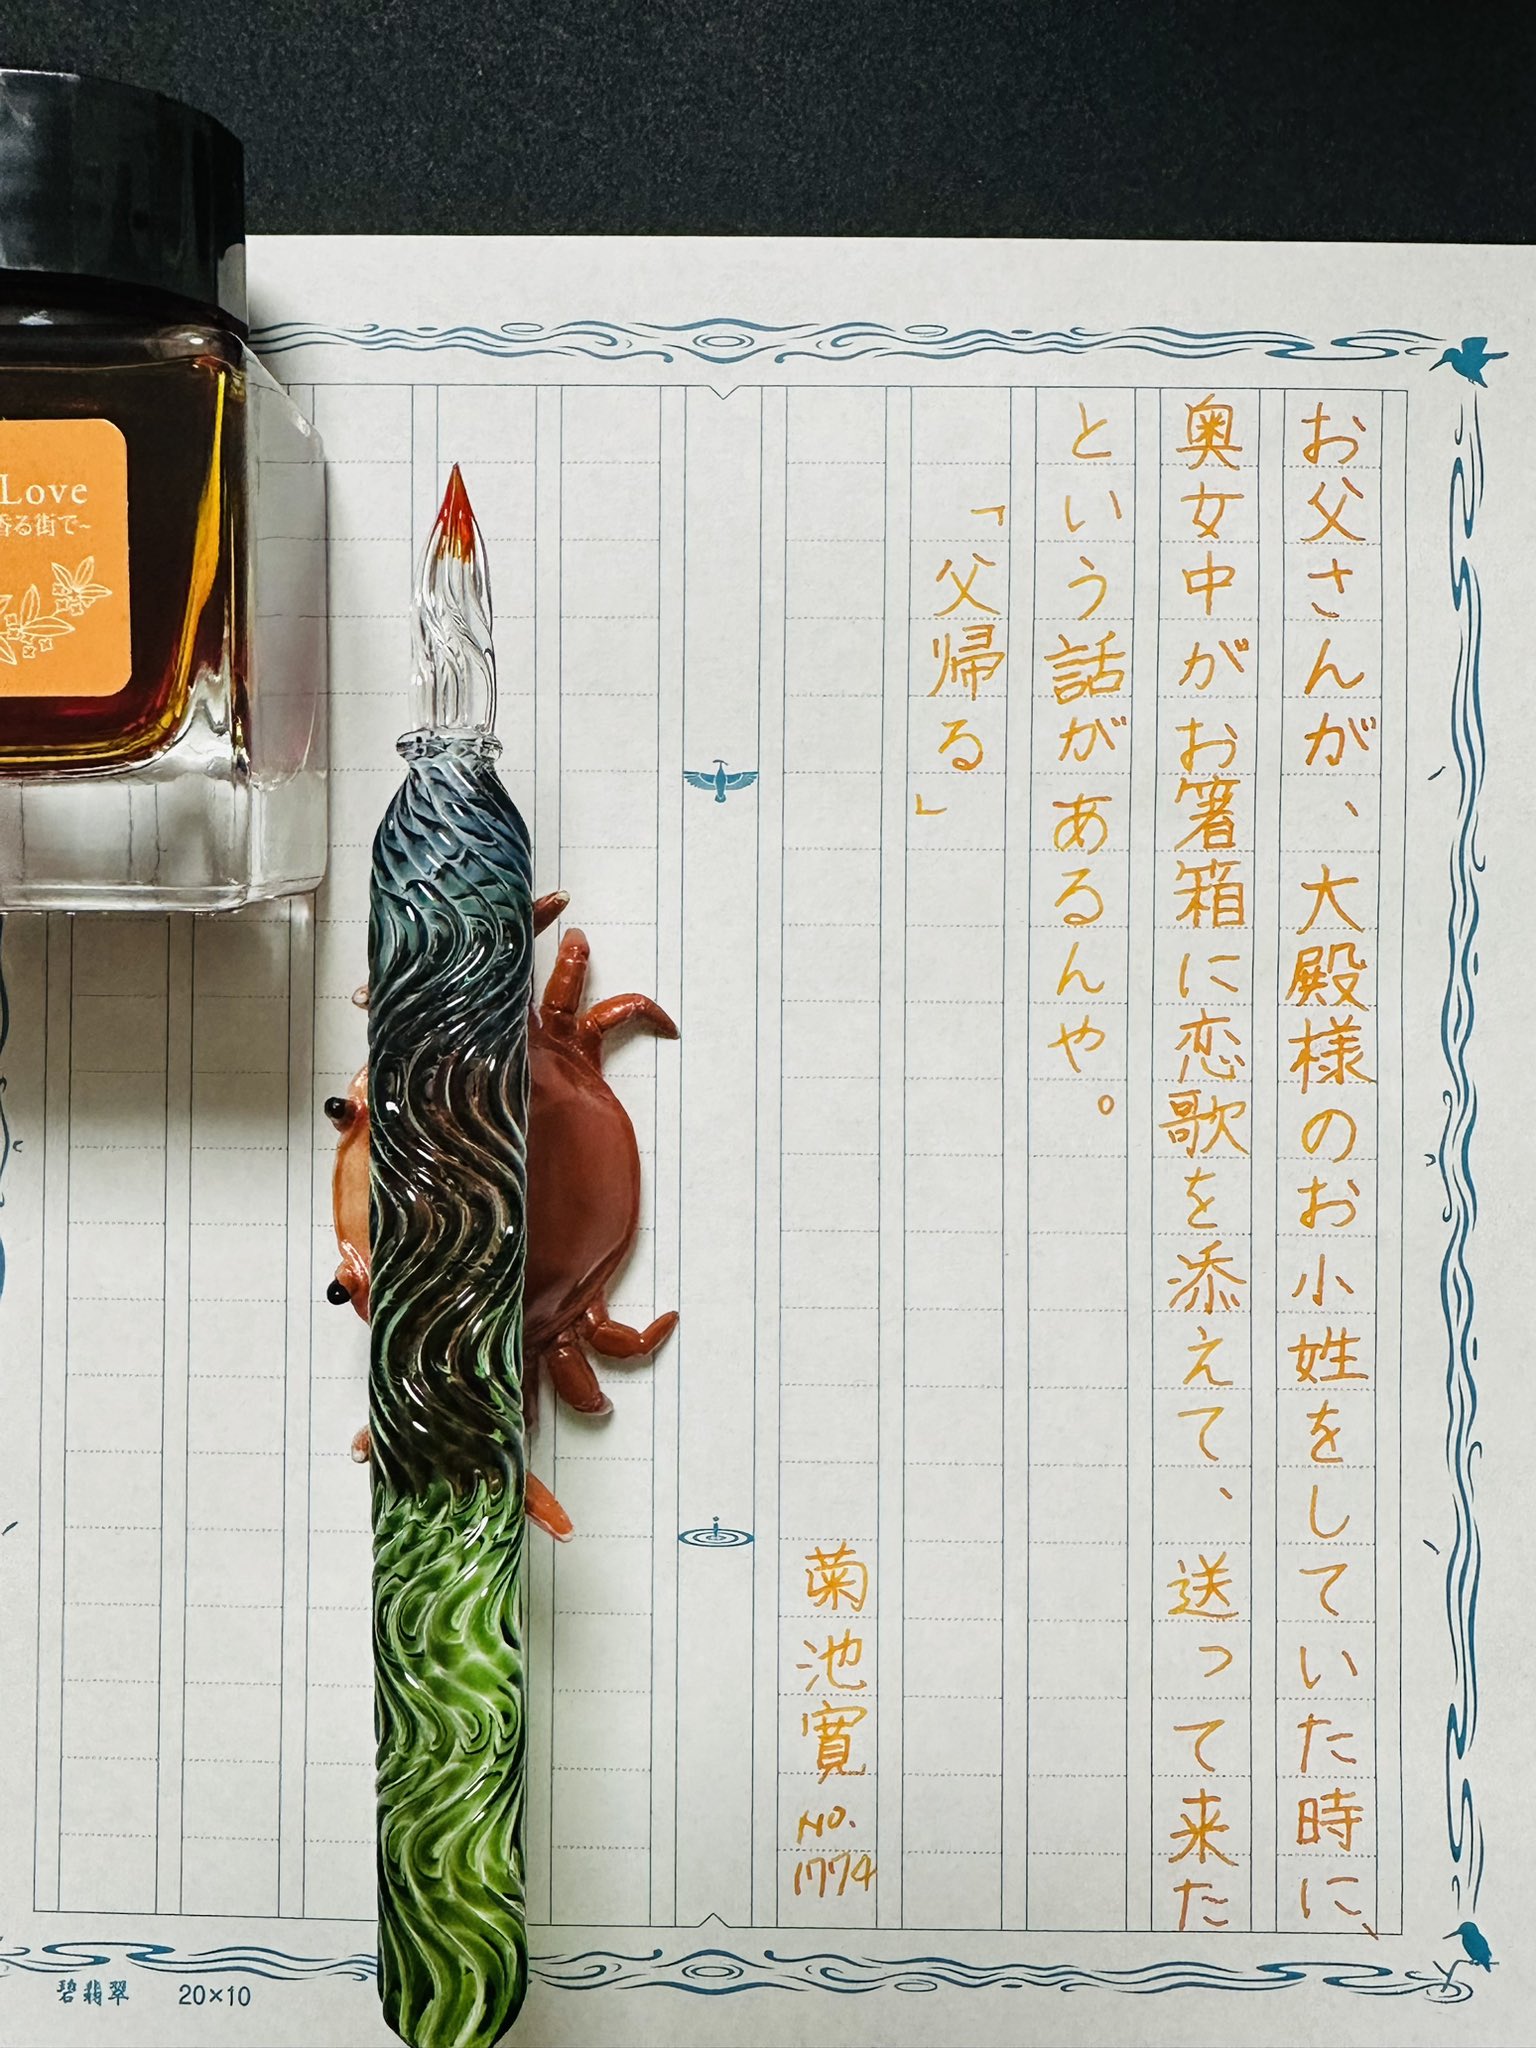 お父さんが、大殿様のお小姓をしていた時に、
奥女中がお箸箱に恋歌を添えて、送って来た
という話があるんや。
「父帰る」
菊池寛
No.
1774
Love
香る街で~
碧翡翠 20×10